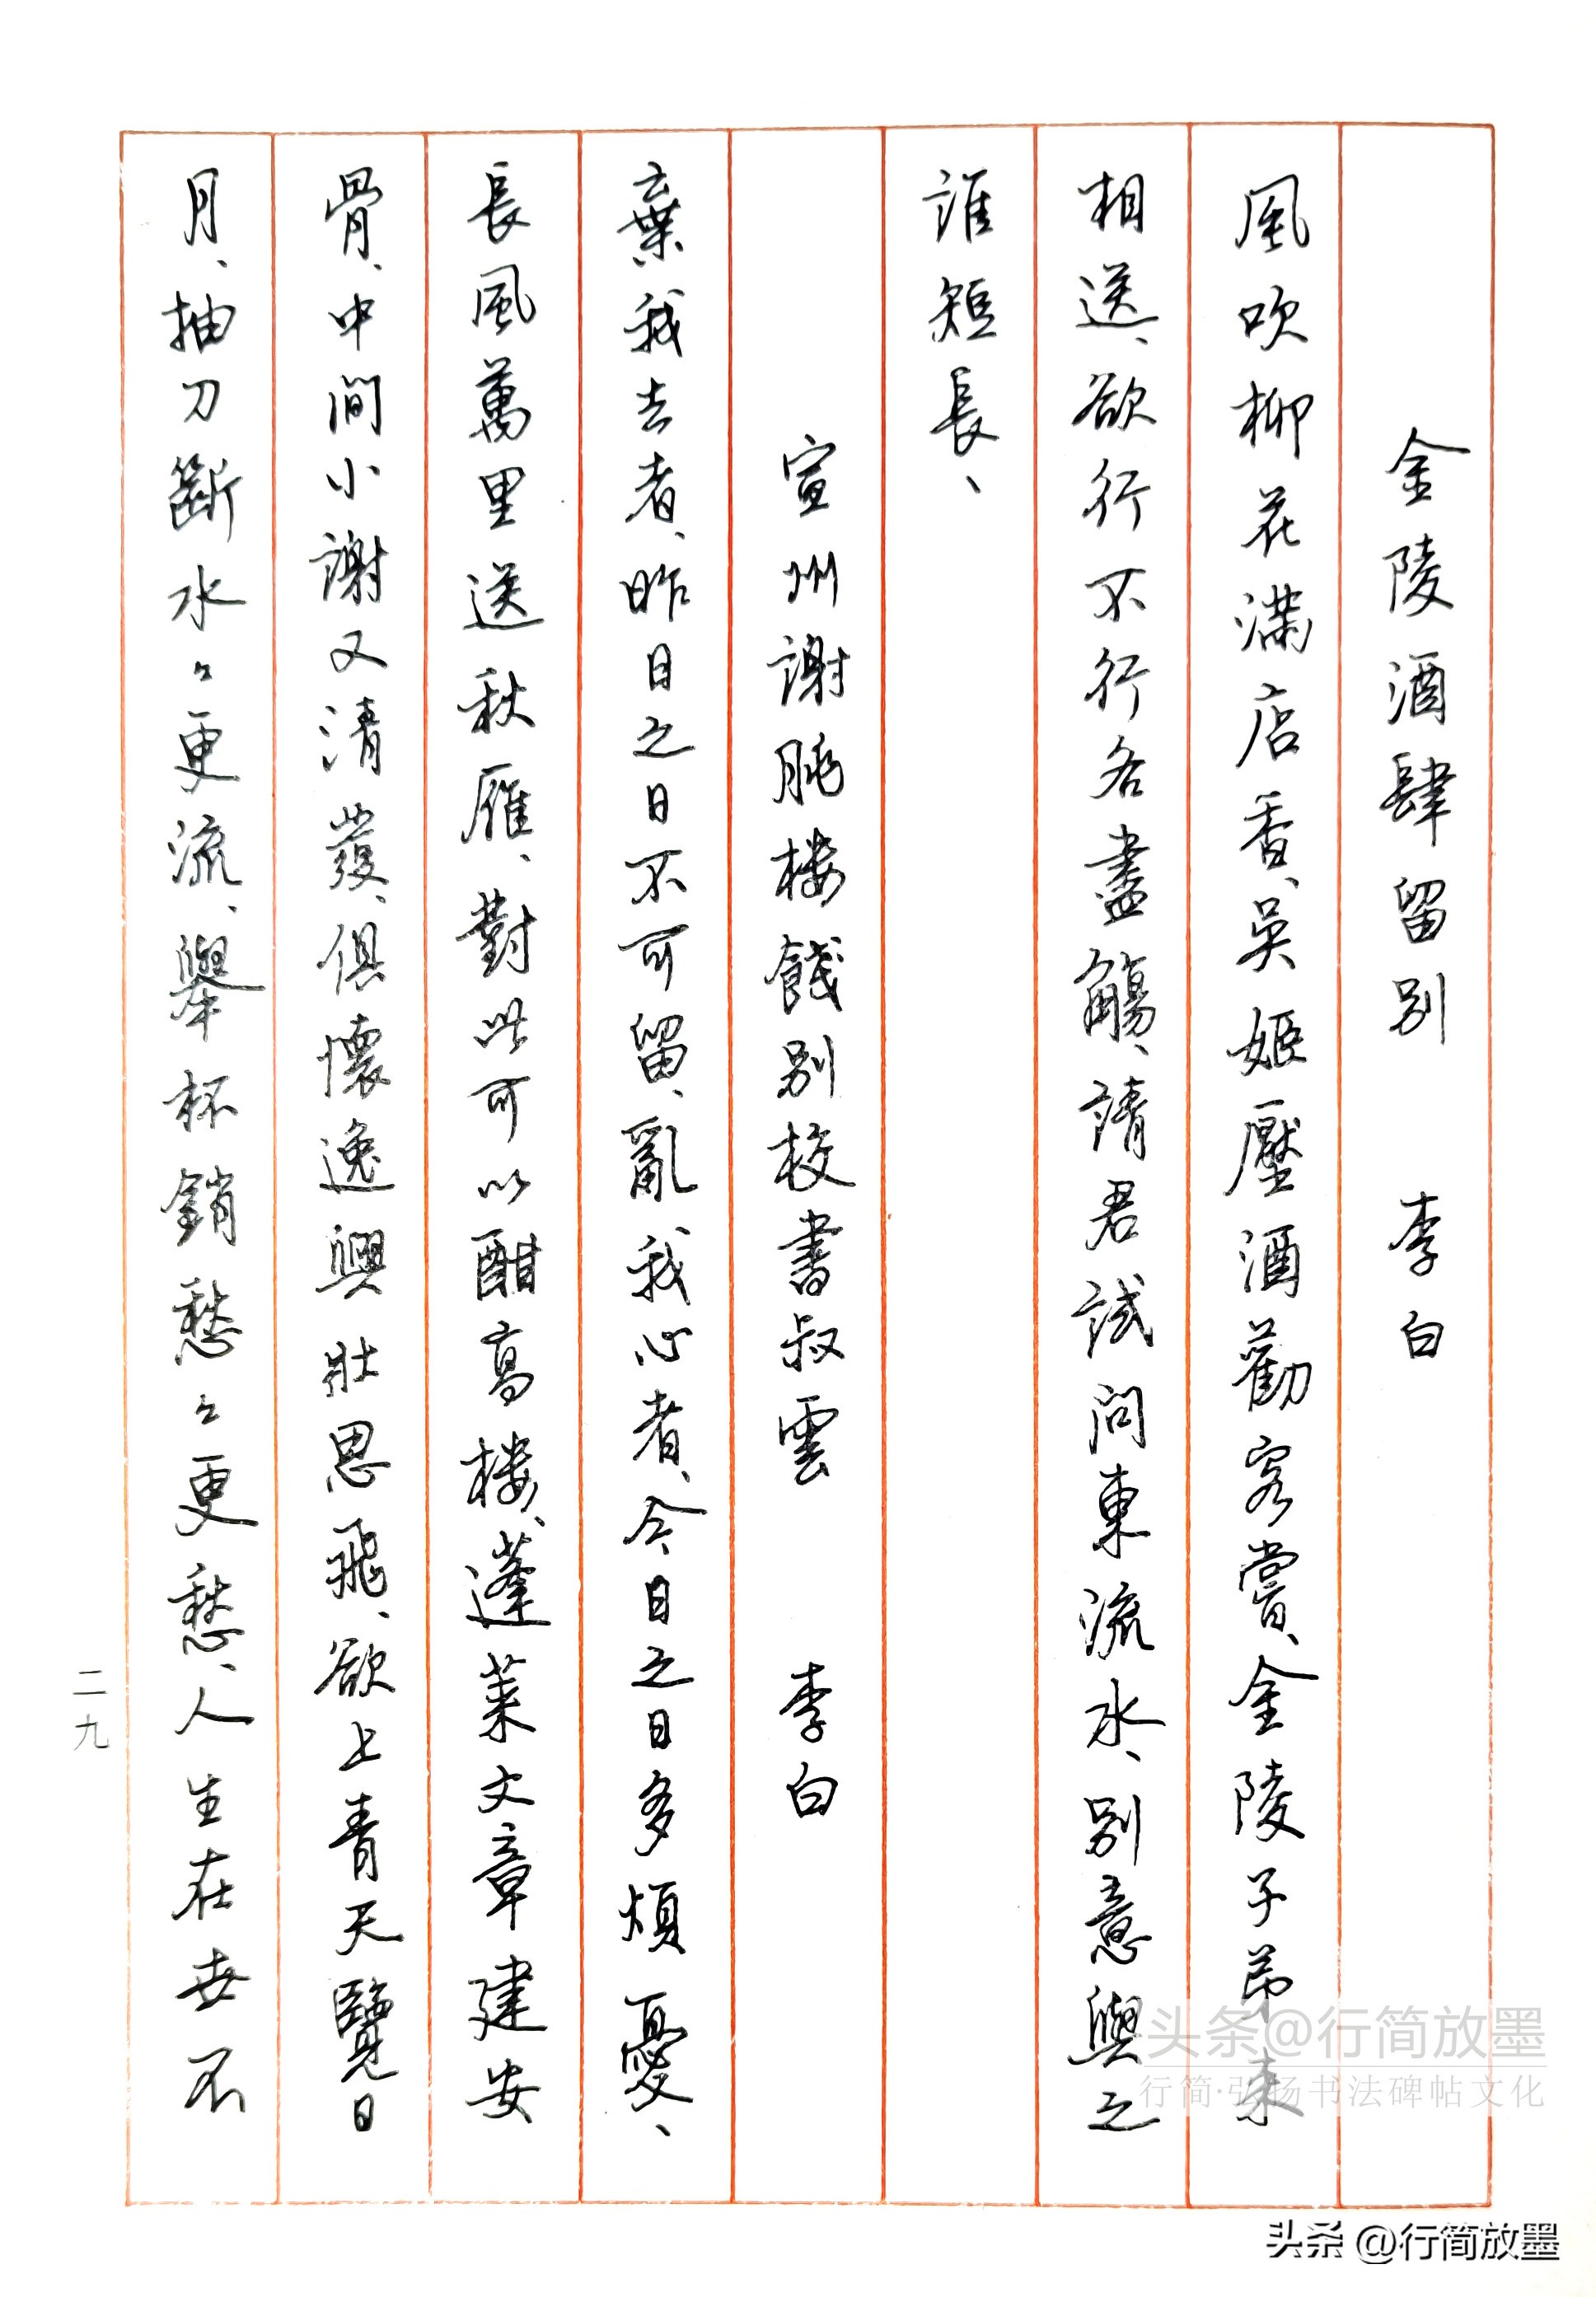 金陵酒肆留别 李白
風吹柳花满店香、吴姬壓酒勸客嘗、金陵子弟来
相送、欲行不行各盡觴、請君試問東流水、别意與之
誰短長、
宣州謝朓楼餞别校書叔雲 李白
棄我去者、昨日之日不可留、亂我心者、今日之日多煩憂、
長風萬里送秋雁、對此可以酣高楼、蓬莱文章建安
骨、中間小謝又清發、俱懷逸興壯思飛、欲上青天覽日
月、抽刀斷水々更流、舉杯銷愁々更愁、人生在世不
二九
头条@行简放墨
行简·弘扬书法碑帖文化
头条 @行简放墨